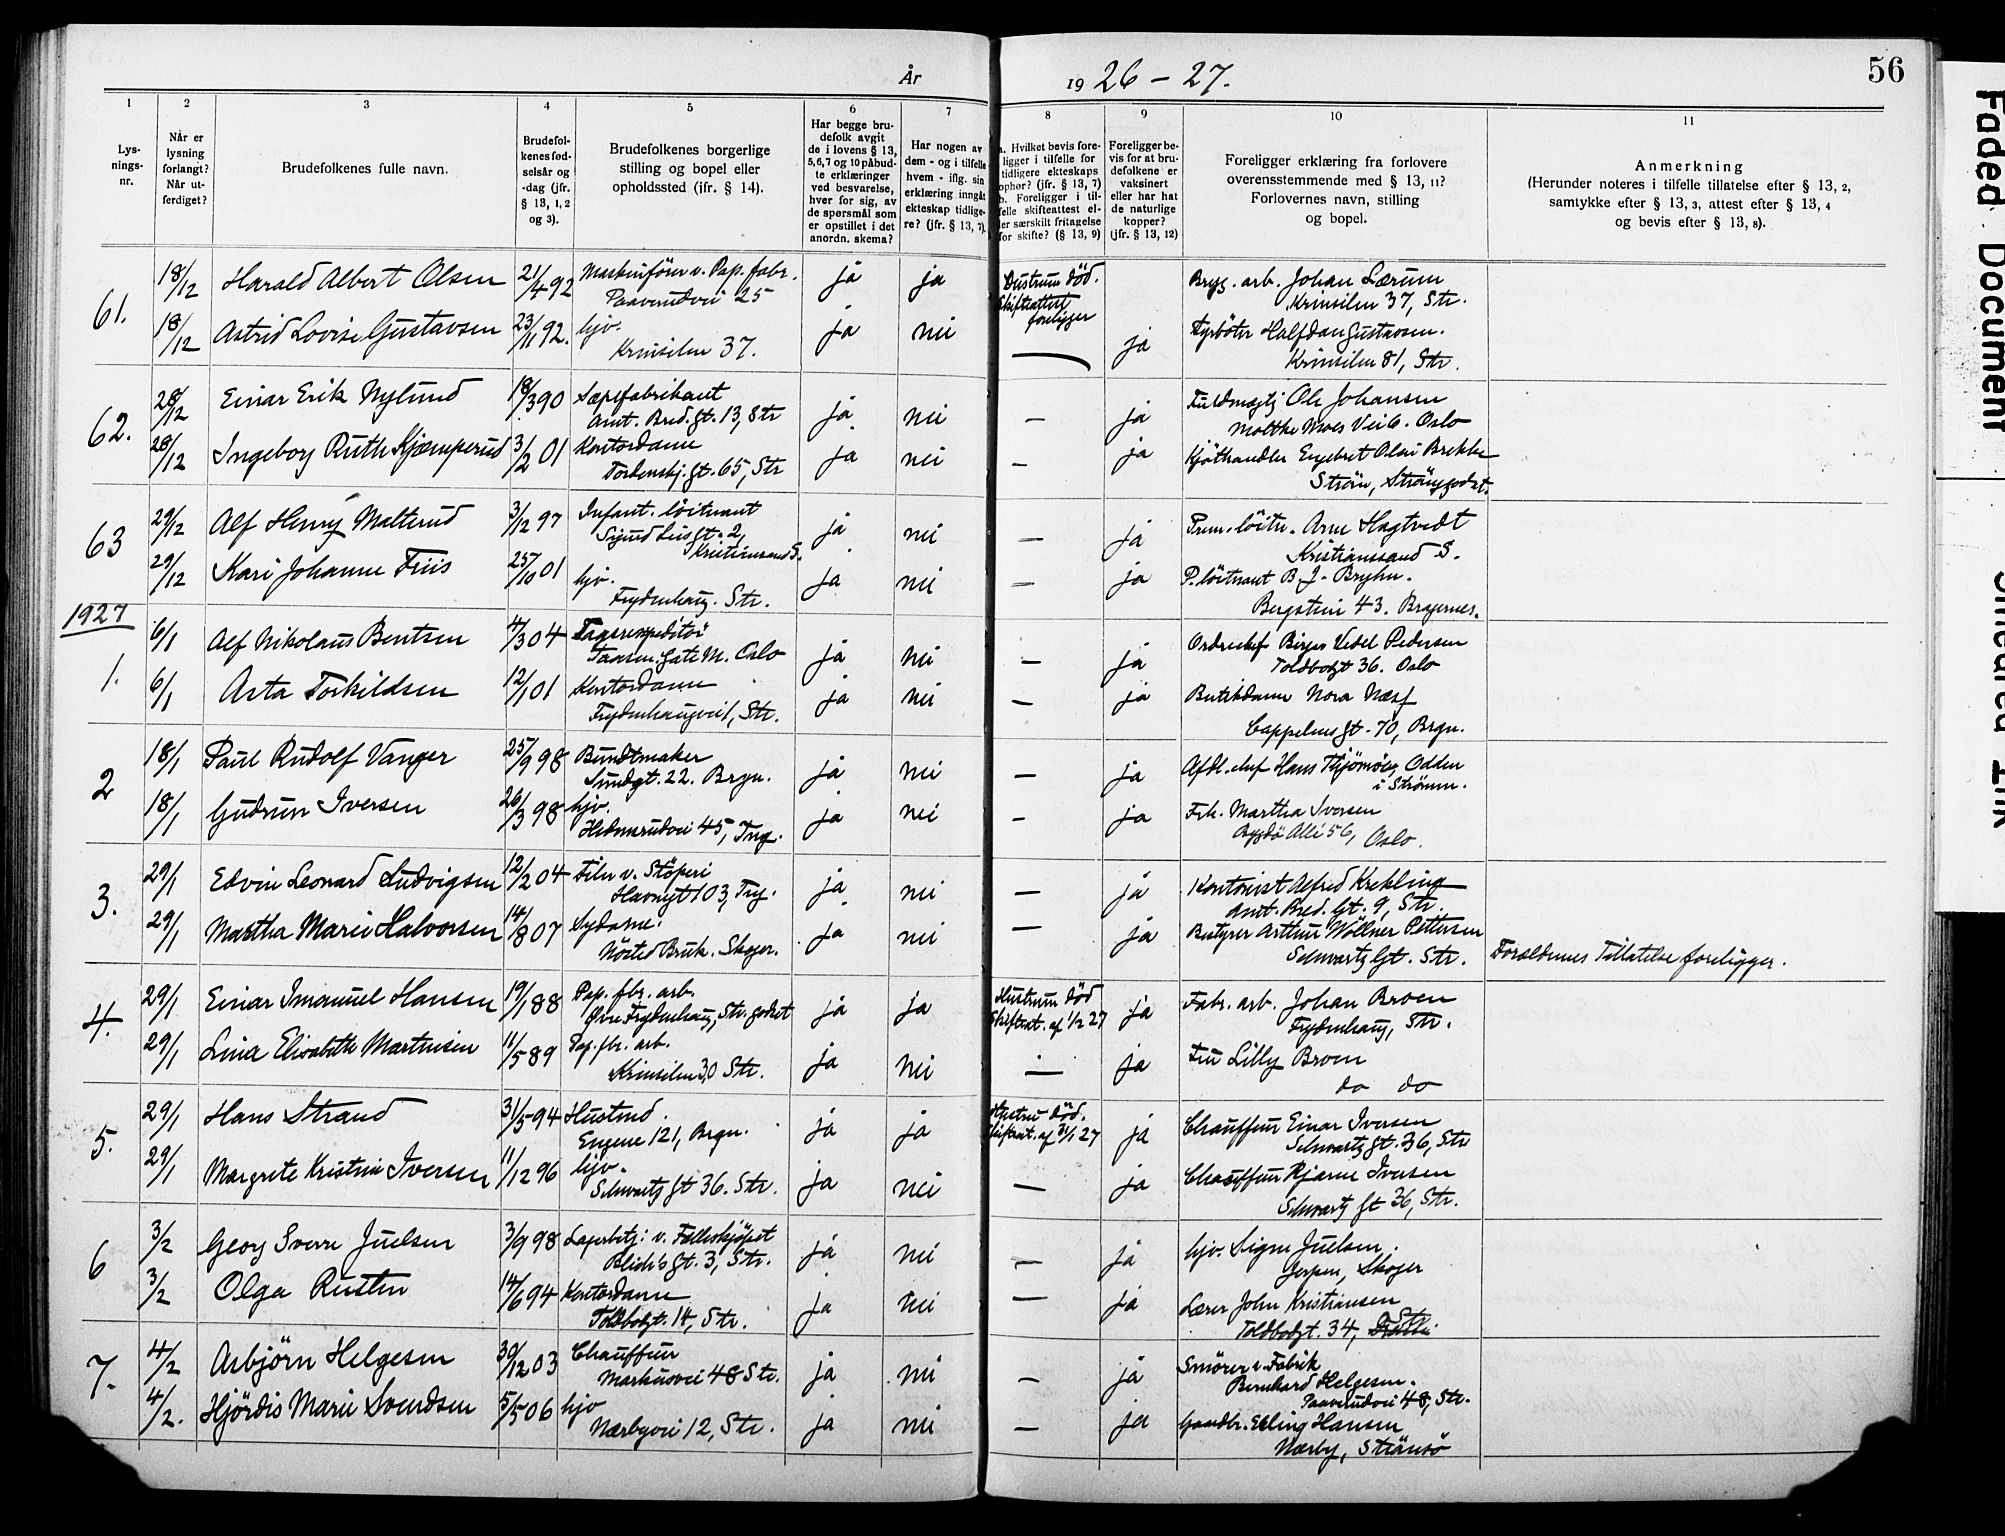 År 1926-27.
56
1
2
3
4
5
6
7
8
9
10
11
Lys-
nings-
nr.
Når er
lysning
forlangt?
Når ut-
ferdiget?
Brudefolkenes fulle navn.
Brudefol-
kenes fød-
selsår og
-dag (jfr.
§ 13, 1, 2
og 3).
Brudefolkenes borgerlige
stilling og bopel eller
opholdssted (jfr. § 14).
Har begge bru-
defolk avgit
de i lovens § 13,
5, 6, 7 og 10 påbud-
te erklæringer
ved besvarelse,
hver for sig, av
de spørsmål som
er opstillet i det
anordn. skema?
Har nogen av
dem - og i tilfelle
hvem - iflg. sin
erklæring inngåt
ekteskap tidlige-
re? (jfr. § 13, 7).
a. Hvilket bevis fore-
ligger i tilfelle for
tidligere ekteskaps
ophør? (jfr. § 13, 7)
b. Foreligger i til-
felle skifteattest el-
ler særskilt fritagelse
for skifte? (§ 13, 9)
Foreligger be-
vis for at bru-
defolkene er
vaksinert
eller har hat
de naturlige
kopper?
(jfr. § 13, 12)
Foreligger erklæring fra forlovere
overensstemmende med § 13, 11?
Forlovernes navn, stilling
og bopel.
Anmerkning
(Herunder noteres i tilfelle tillatelse efter § 13, 2,
samtykke efter § 13, 3, attest efter § 13, 4
og bevis efter § 13, 8).
61.
18/12 Harald Albert Olsen 21/4 92 Maskinförer v. Pap. fabr. ja ja Hustrum död. Bryg. arb. Johan Lærum
Paaverudvei 25 Skifteattest foreligger Krinsilen 37, Str.
18/12 Astrid Lovise Gustavsen 23/11 92. hjv. ja nei — ja Fyrböter Halfdan Gustavsen.
Krinsilen 37. Krinsilen 81, Str.
62.
28/12 Einar Erik Nylund 18/3 90 Sæpefabrikant ja nei — ja Fuldmægtj Ole Johansen
Amt. Bred. gt. 13, Str Moltke Moes Vei 6. Oslo
28/12 Ingeborg Ruth Kjæmperud 3/2 01 Kontordame ja nei — ja Kjöthandler Engebret Olai Brekke
Tordenskj. gt. 65, Str Ström, Strömsgodset.
63
29/12 Alf Henry Malterud 3/12 97 Infant. löitnant ja nei — ja Prem. löitn. Arne Hagtvedt
Sigurd Lies gt. 2, Kristiansand S. Kristianssand S.
29/12 Kari Johanne Friis 25/10 01 hjv. ja nei — ja P. löitnant B. J. Bryhn.
Frydenhaug. Str. Bergstien 43. Bragernes.
1927
1.
6/1 Alf Nikolaus Bentsen 4/3 04 ja nei — ja Ordrechef Birger Vedel Pedersen
Oslo Toldbodgt 36. Oslo
6/1 Asta Torkildsen 12/1 01 Kontordame ja nei — ja Butikdame Nora Næss
Frydenhaugvei 1, Str. Cappelens gt. 70, Brgn.
2
18/1 Paul Rudolf Vanger 25/9 98 Bundtmaker ja nei — ja Afdl. chef Hans Thjömöe, Odden
Sundgt. 22. Brgn. i Strömm.
18/1 Gudrun Iversen 26/3 98 hjv. ja nei — ja Frk. Martha Iversen
Hedensrudvei 45, Tng. Bygdö Allé 56, Oslo.
3.
29/1 Edvin Leonard Ludvigsen 12/2 04 Filer v. Stöperi ja nei — ja Kontorist Alfred Krekling
Havnegt 103, Tng. Amt. Bred. Gt. 9, Str.
29/1 Martha Marie Halvorsen 14/8 07 Sydame. ja nei — ja Bestyrer Arthur Wöllner Pettersen
Nösted Bruk. Skoger. Schwartz Gt. Str. Forældrenes Tillatelse foreligger.
4.
29/1 Einar Imanuel Hansen 19/1 88 Pap. fbr. arb. ja ja Hustrum död ja Fabr. arb. Johan Broen
Övre Frydenhaug, Str. godset Skifteat. af 1/2 27 Frydenhaug, Str.
29/1 Lina Elisabeth Martinsen 11/5 89 Pap. fbr. arb. ja nei — ja Fru Lilly Broen
Krinsilen 30 Str. do do
5.
29/1 Hans Strand 31/5 94 ja ja Hustru död. ja Chauffeur Einar Iversen
Engene 121, Brgn. Skifteat. af 31/1 27 Schwartz gt. 36, Str
29/1 Margrete Kristine Iversen 11/12 96 hjv. ja nei — ja Chauffeur Bjarne Iversen
Schwartz gt 36. Str. Schwartz gt 36, Str.
6
3/2 Georg Sverre Juelsen 3/9 98 Lagerbetj. v. Felleskjöpet ja nei — ja hjv. Signe Juelsen.
Blich's gt. 3, Str. Jerpen, Skoger
3/2 Olga Rusten 14/6 94 Kontordame ja nei — ja Lærer John Kristiansen
Toldbodgt. 14, Str. Toldbodgt. 34, Str.
7.
4/2 Asbjörn Helgesen 30/12 03 Chauffeur ja nei — ja Smörer v. Fabrik
Markusvei 48 Str. Bernhard Helgesen.
Paaverudvei 48, Str.
4/2. Hjördis Marie Svendsen 5/5 06 hjv ja nei — ja Gaardbr. Erling Hansen
Nærbyvei 12, Str. Nærby, Strömsö
Faded Document
Smeared Ink